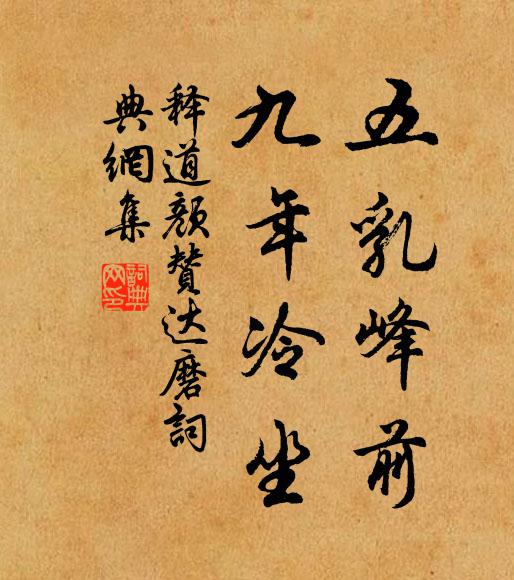 五乳峰前
九年冷坐
释道颜赞达磨詞
典網集
詞典
网印